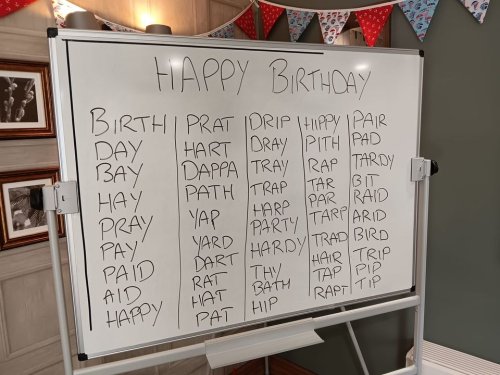 HAPPY BIRTHDAY
BIRTH
DAY
BAY
HAY
PRAY
PAY
PAID
AID
HAPPY
PRAT
HART
DAPPA
PATH
YAP
YARD
DART
RAT
HAT
PAT
DRIP
DRAY
TRAY
TRAP
HARP
PARTY
HARDY
THY
BATH
HIP
HIPPY
PITH
RAP
TAR
PAR
TARP
TRAD
HAIR
TAP
RAPT
PAIR
PAD
TARDY
BIT
RAID
ARID
BIRD
TRIP
PIP
TIP